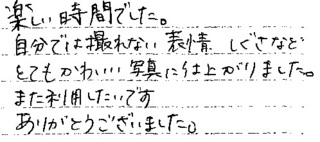 楽しい時間でした。
自分では撮れない表情 しぐさなど
とてもかわいい写真に仕上がりました。
また利用したいです
ありがとうございました。